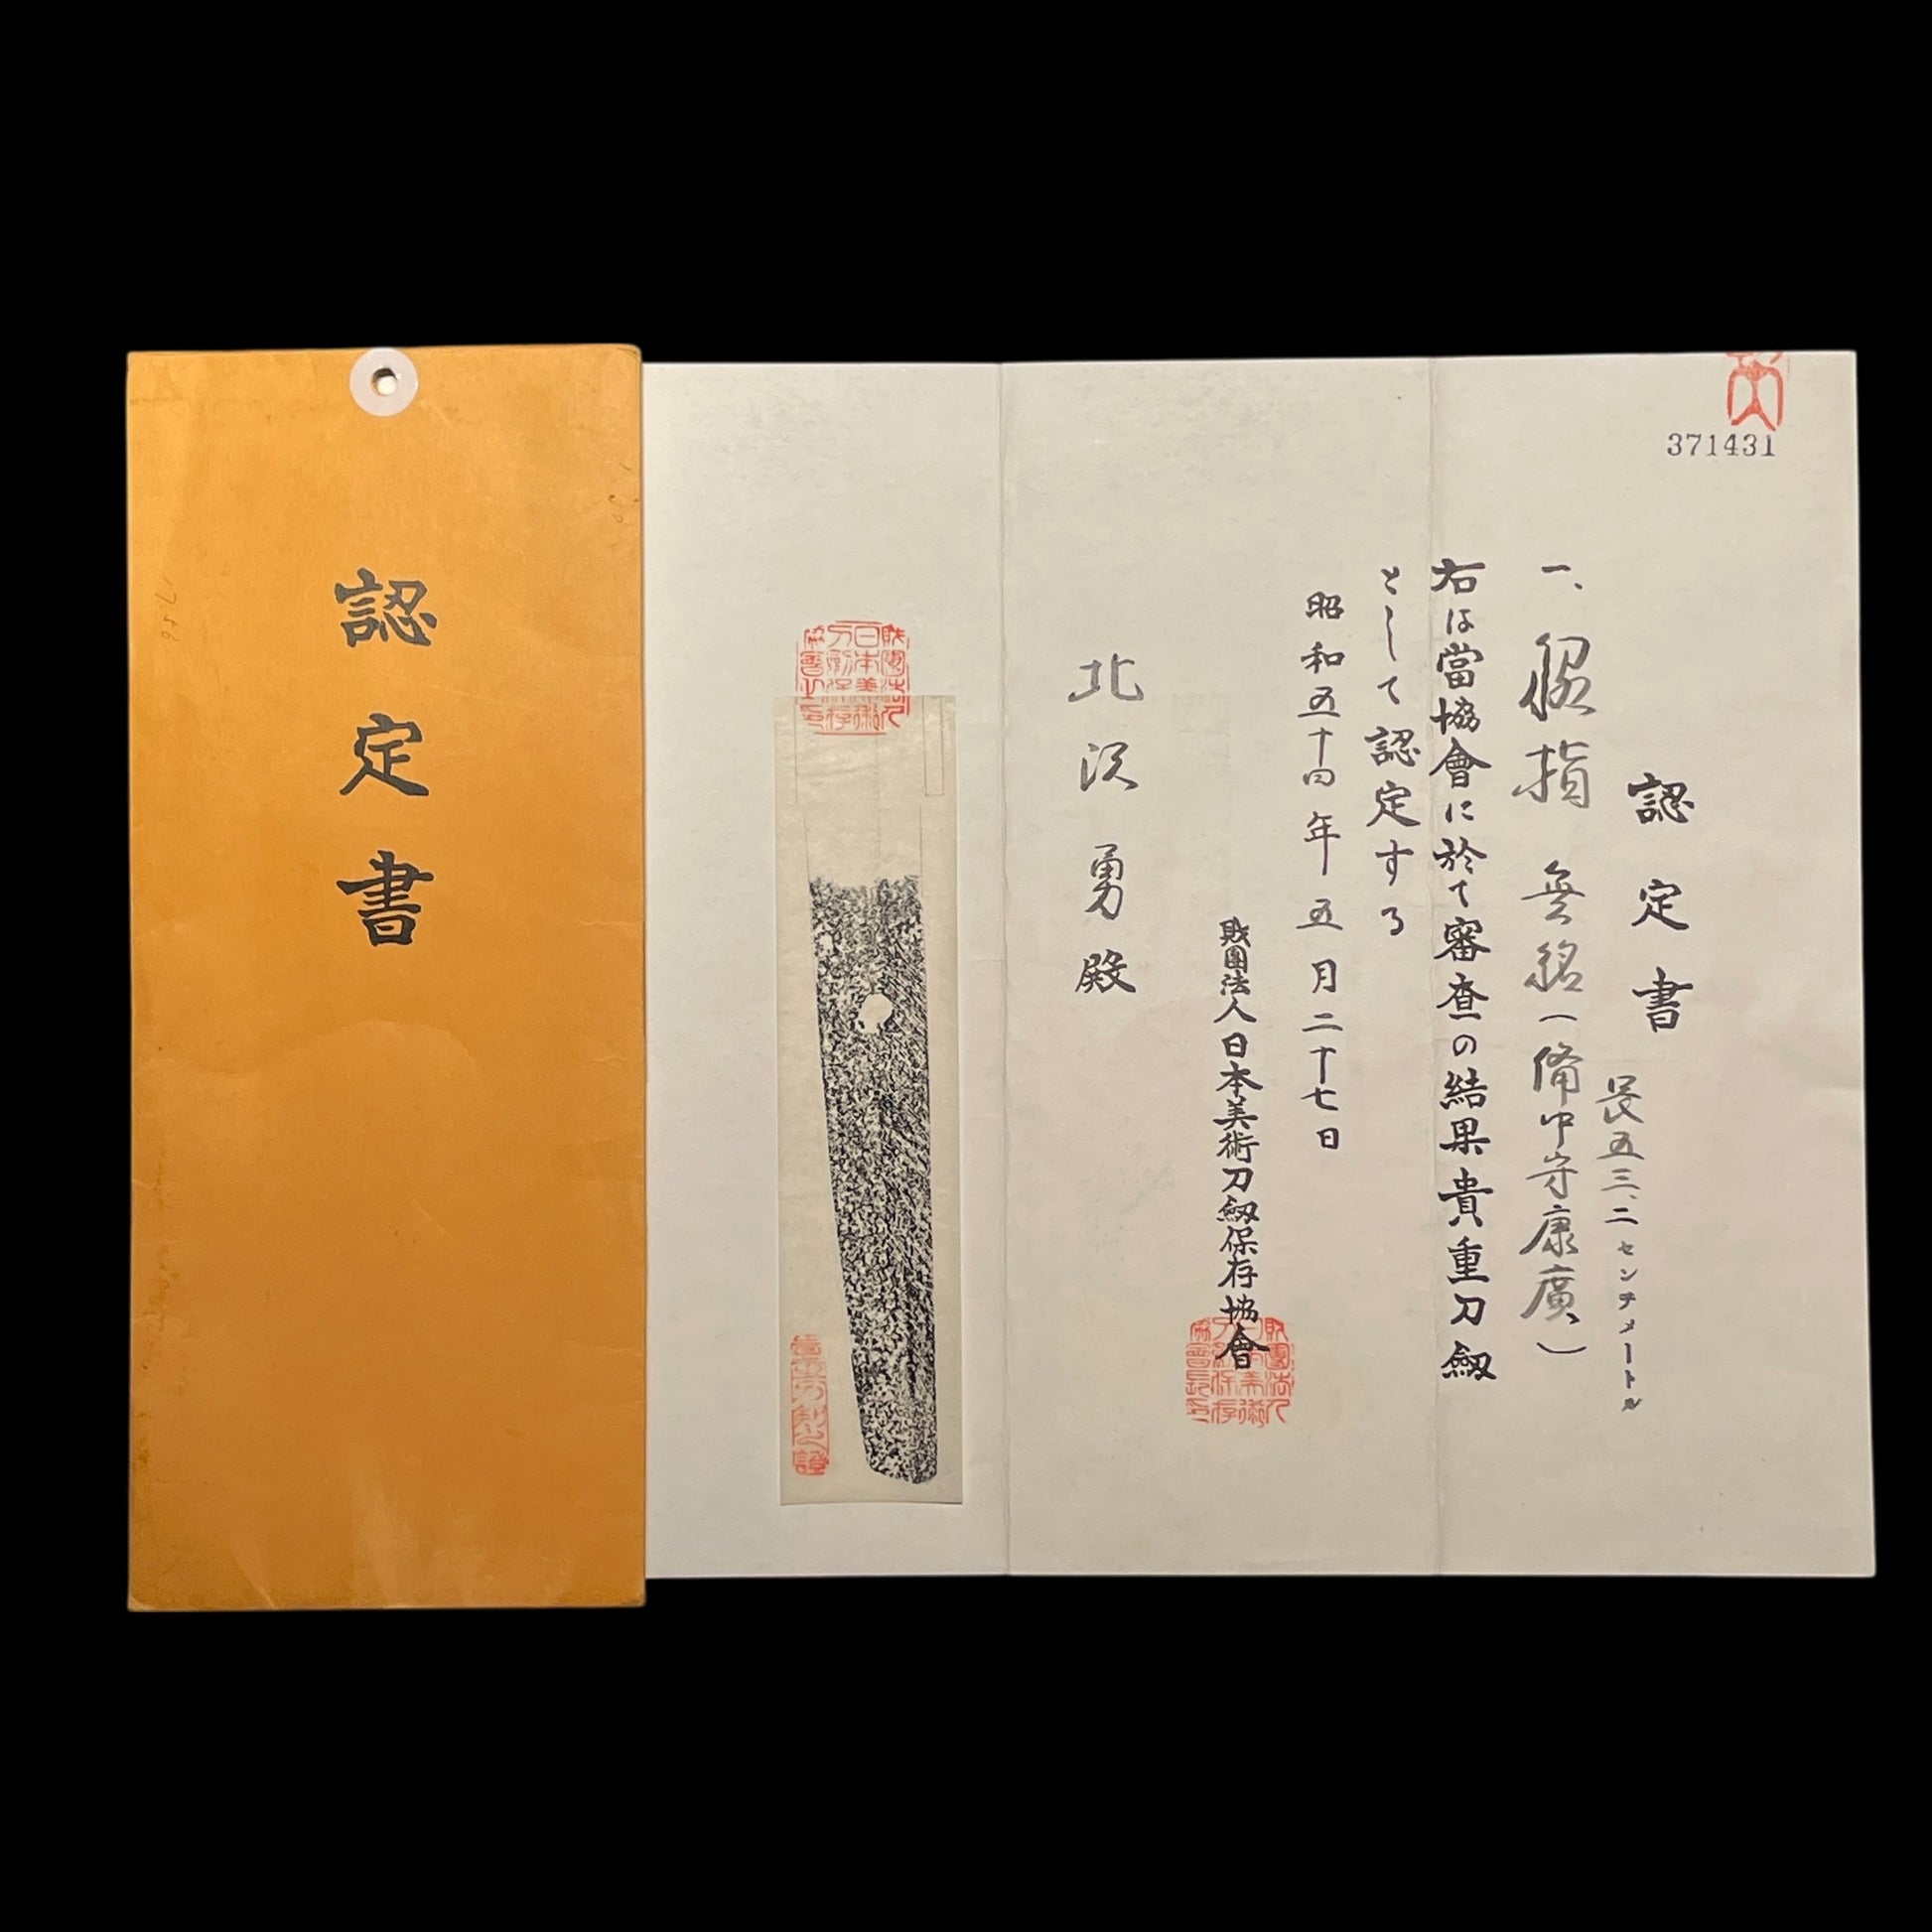 認定書
371431
認定書
長五三、二センチメートル
一、脇指 無銘(備中守康廣)
右は當協會に於て審査の結果貴重刀剱
として認定する
昭和五十四年五月二十七日
財團法人日本美術刀剱保存協會
北沢勇殿